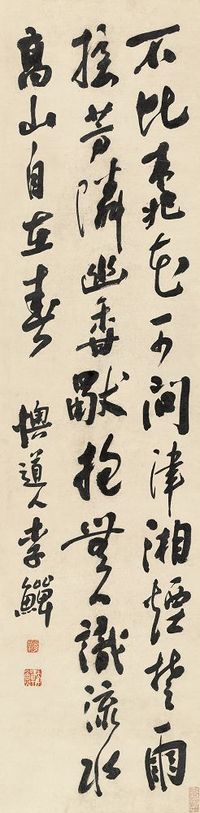 不比桃花可問津湘煙楚雨
接芳隣幽香獨抱無人識流水
高山自在春
懊道人李鱓